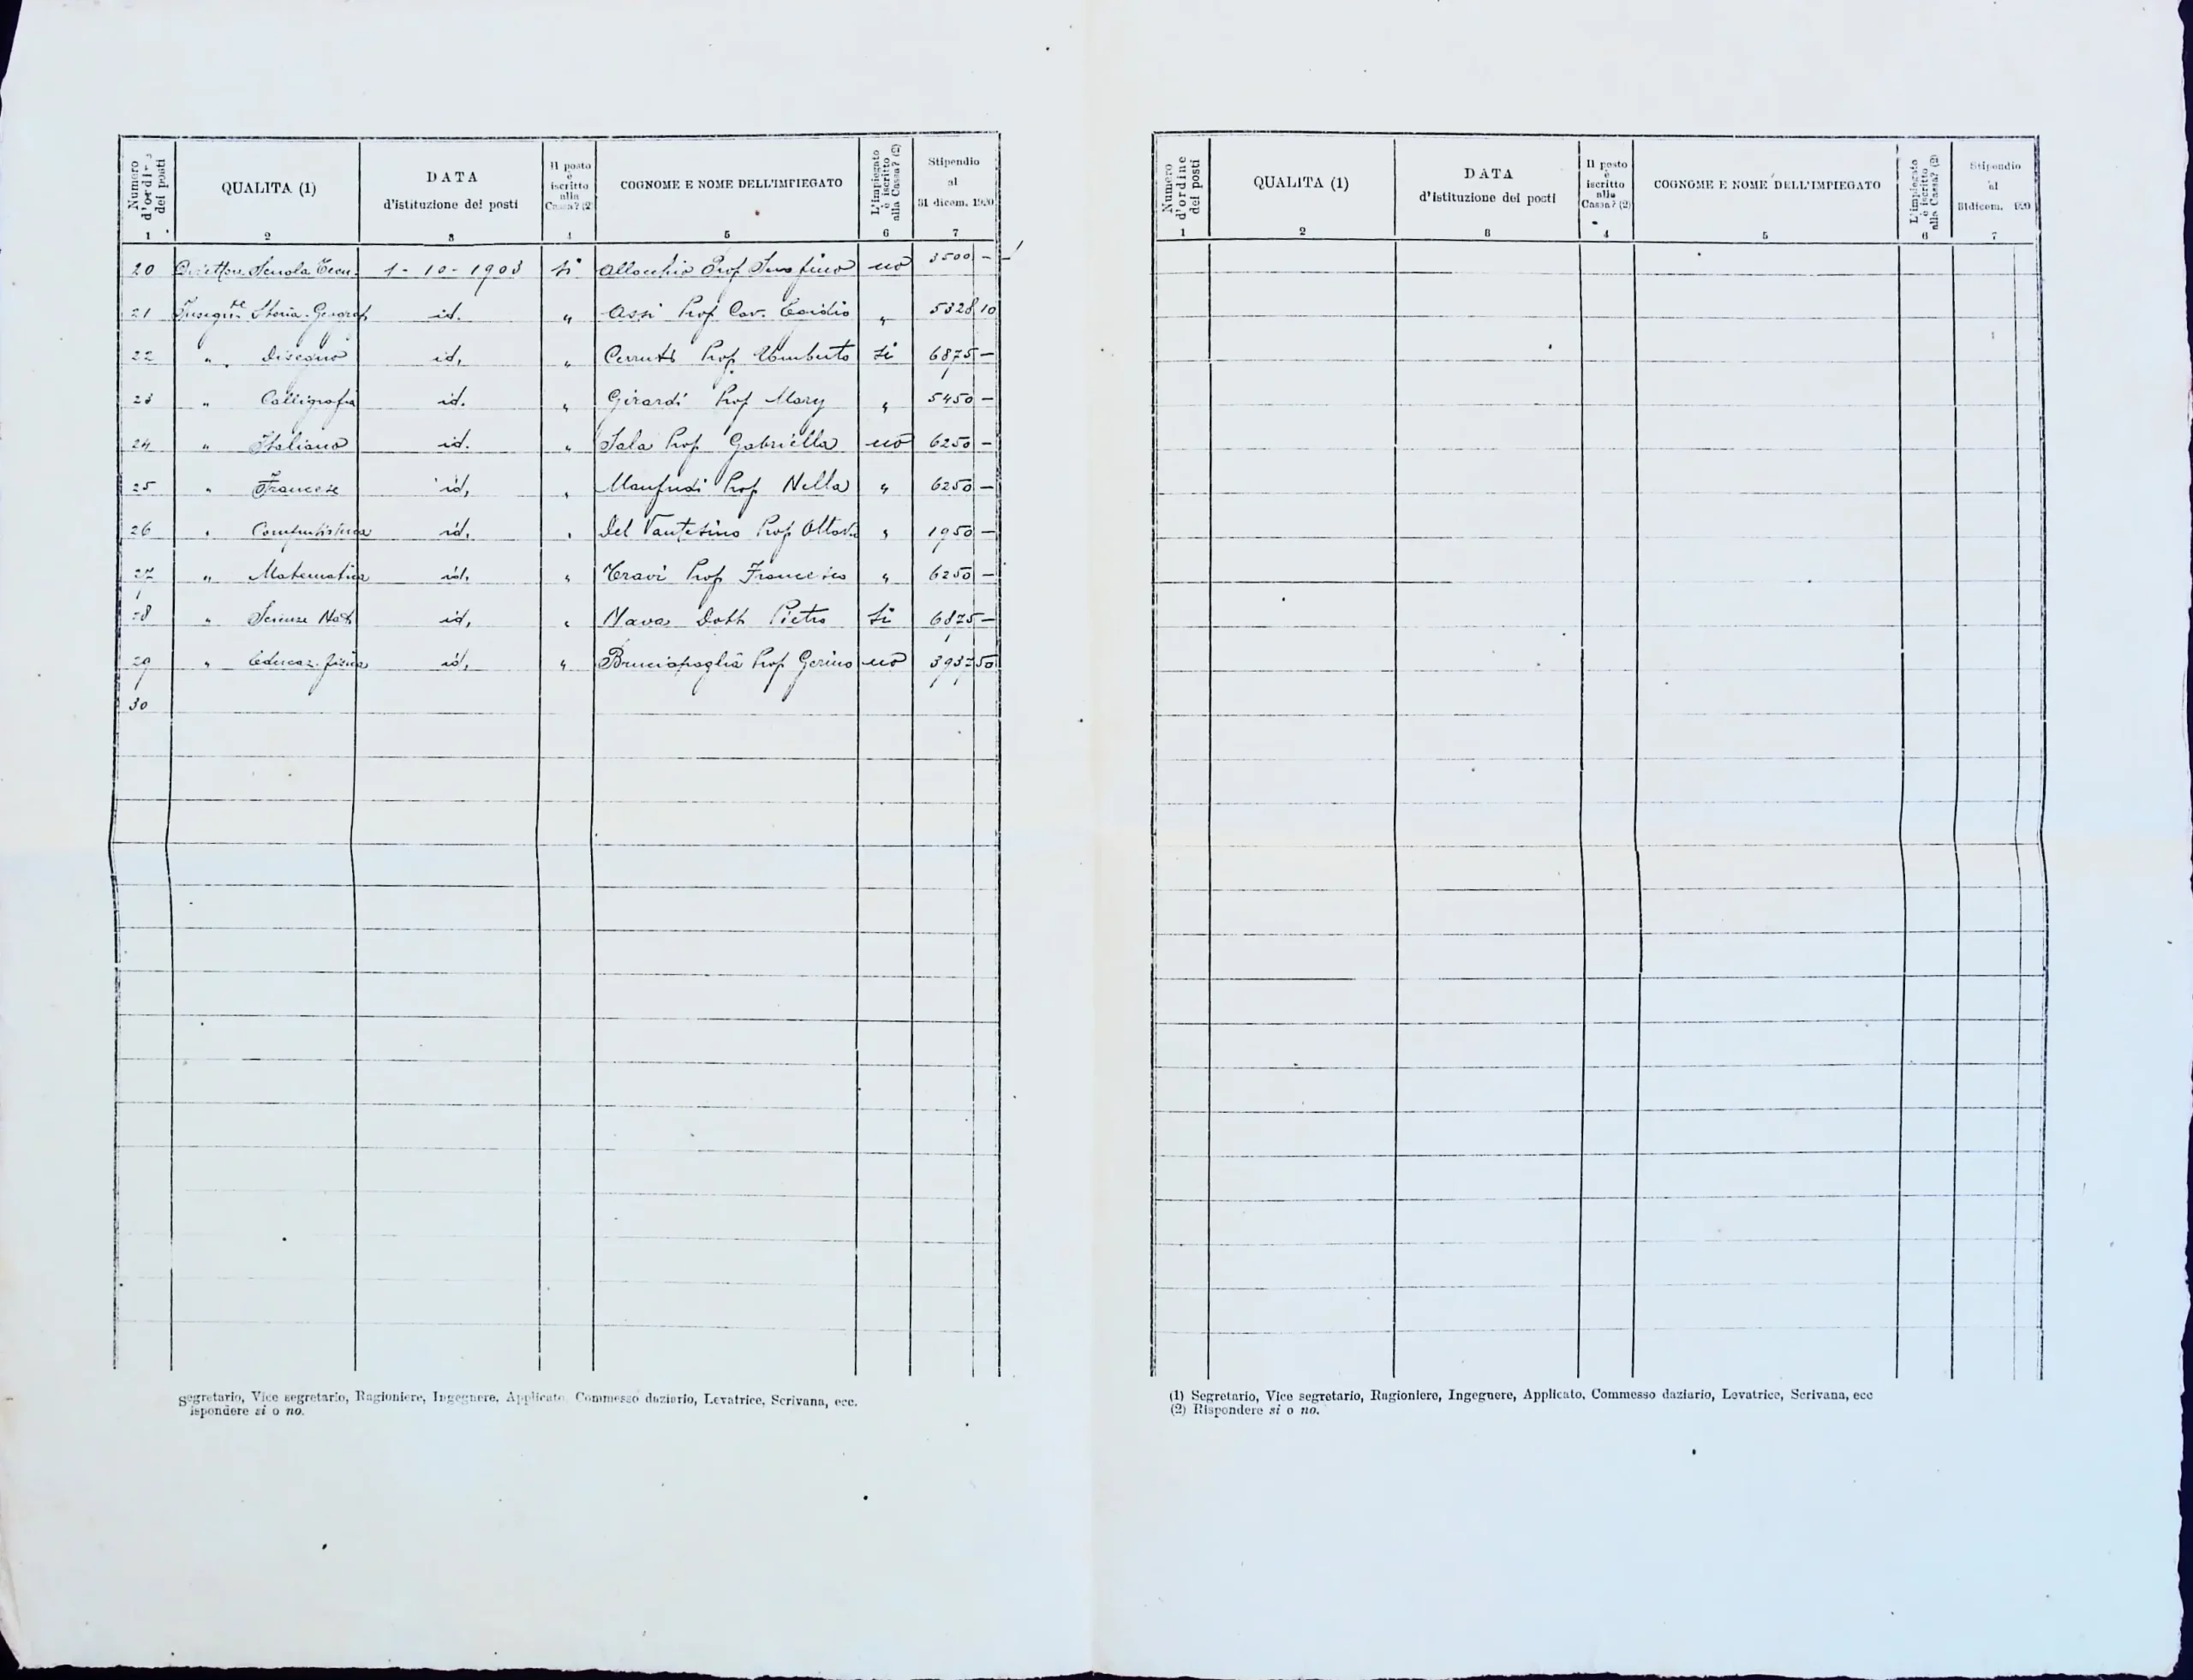 Numero d'ordine dei posti
QUALITA (1)
DATA d'istituzione dei posti
Il posto è iscritto alla Cassa? (2
COGNOME E NOME DELL'IMPIEGATO
L'impiegato è iscritto alla Cassa? (2)
Stipendio al 31 dicem. 1920
1 2 3 4 5 6 7
20 Direttore Scuola Tecn. 1-10-1903 si Allocchio Prof Serafino no 3500 -
21 Insegn.te Storia-Geograf id. " Assi Prof Cav. Egidio " 5328 10
22 " Disegno id. " Cerruti Prof Umberto si 6875 -
23 " Calligrafia id. " Girardi Prof Mary " 5450 -
24 " Italiano id. " Sala Prof Gabriella no 6250 -
25 " Francese id. " Manfredi Prof Nella " 6250 -
26 " Computisteria id. " Del Prof " 1950 -
27 " Matematica id. " Travi Prof Francesco " 6250 -
28 " Scienze Nat. id. " Nava Dott Pietro si 6875 -
29 " Educaz. fisica id. " Bruciapaglia Prof Gerino no 3937 50
30
Segretario, Vice segretario, Ragioniere, Ingegnere, Applicato, Commesso daziario, Levatrice, Scrivana, ecc.
ispondere si o no.
Numero d'ordine dei posti
QUALITA (1)
DATA d'istituzione dei posti
Il posto è iscritto alla Cassa? (2)
COGNOME E NOME DELL'IMPIEGATO
L'impiegato è iscritto alla Cassa? (2)
Stipendio al 31 dicem. 1920
1 2 3 4 5 6 7
(1) Segretario, Vice segretario, Ragioniere, Ingegnere, Applicato, Commesso daziario, Levatrice, Scrivana, ecc
(2) Rispondere si o no.